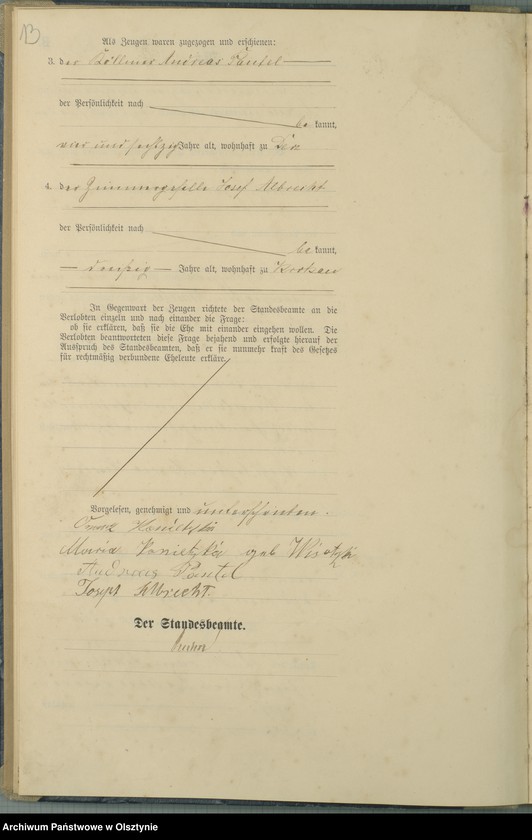 13
Als Zeugen waren zugezogen und erschienen:
3. der Köllmer Andreas
der Persönlichkeit nach
be kannt,
vier und sechszig Jahre alt, wohnhaft zu
4. der Zimmergeselle Josef Albrecht
der Persönlichkeit nach
be kannt,
dreißig Jahre alt, wohnhaft zu
In Gegenwart der Zeugen richtete der Standesbeamte an die
Verlobten einzeln und nach einander die Frage:
ob sie erklären, daß sie die Ehe mit einander eingehen wollen. Die
Verlobten beantworteten diese Frage bejahend und erfolgte hierauf der
Ausspruch des Standesbeamten, daß er sie nunmehr kraft des Gesetzes
für rechtmäßig verbundene Eheleute erkläre.
Vorgelesen, genehmigt und unterschrieben.
Maria geb
Joseph Albrecht.
Der Standesbeamte.
Archiwum Państwowe w Olsztynie